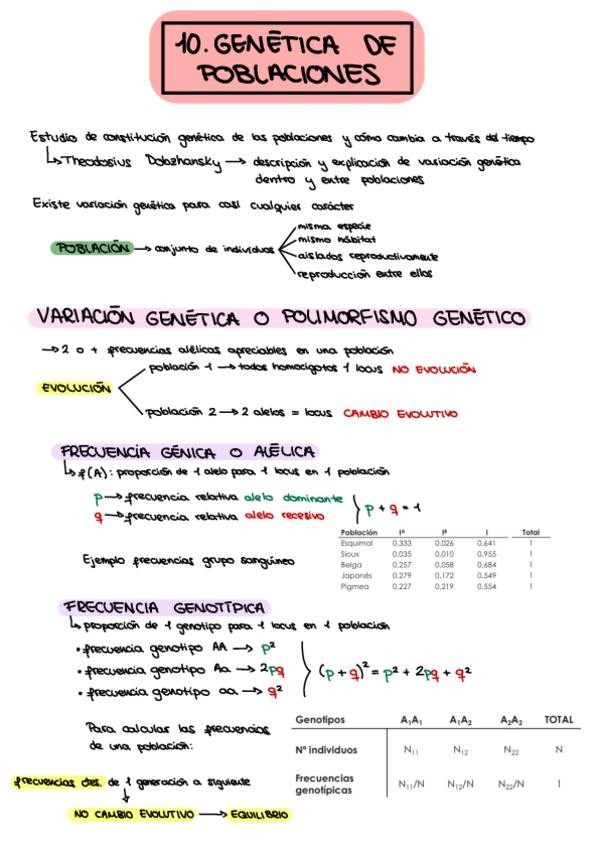 10. GENÉTICA DE
POBLACIONES
Estudio de constitución genética de las poblaciones y cómo cambia a través del tiempo
↳ Theodosius Dobzhansky → descripción y explicación de variación genética
dentro y entre poblaciones
Existe variación genética para casi cualquier carácter
POBLACIÓN → conjunto de individuos
misma especie
mismo hábitat
aislados reproductivamente
reproducción entre ellos
VARIACIÓN GENÉTICA O POLIMORFISMO GENÉTICO
→ 2 o + frecuencias alélicas apreciables en una población
EVOLUCIÓN
población 1 → todos homocigotos 1 locus NO EVOLUCIÓN
población 2 → 2 alelos = locus CAMBIO EVOLUTIVO
FRECUENCIA GÉNICA O ALÉLICA
↳ f(A): proporción de 1 alelo para 1 locus en 1 población
p → frecuencia relativa alelo dominante
q → frecuencia relativa alelo recesivo
p + q = 1
Ejemplo frecuencias grupo sanguíneo
Población Iᴬ Iᴮ I Total
Esquimal 0,333 0,026 0,641 1
Sioux 0,035 0,010 0,955 1
Belga 0,257 0,058 0,684 1
Japonés 0,279 0,172 0,549 1
Pigmea 0,227 0,219 0,554 1
FRECUENCIA GENOTÍPICA
↳ proporción de 1 genotipo para 1 locus en 1 población
• frecuencia genotipo AA → p²
• frecuencia genotipo Aa → 2pq
• frecuencia genotipo aa → q²
(p + q)² = p² + 2pq + q²
Para calcular las frecuencias
de una población:
Genotipos A₁A₁ A₁A₂ A₂A₂ TOTAL
Nº individuos N₁₁ N₁₂ N₂₂ N
Frecuencias
genotípicas N₁₁/N N₁₂/N N₂₂/N 1
frecuencias ctes. de 1 generación a siguiente
↓
NO CAMBIO EVOLUTIVO → EQUILIBRIO